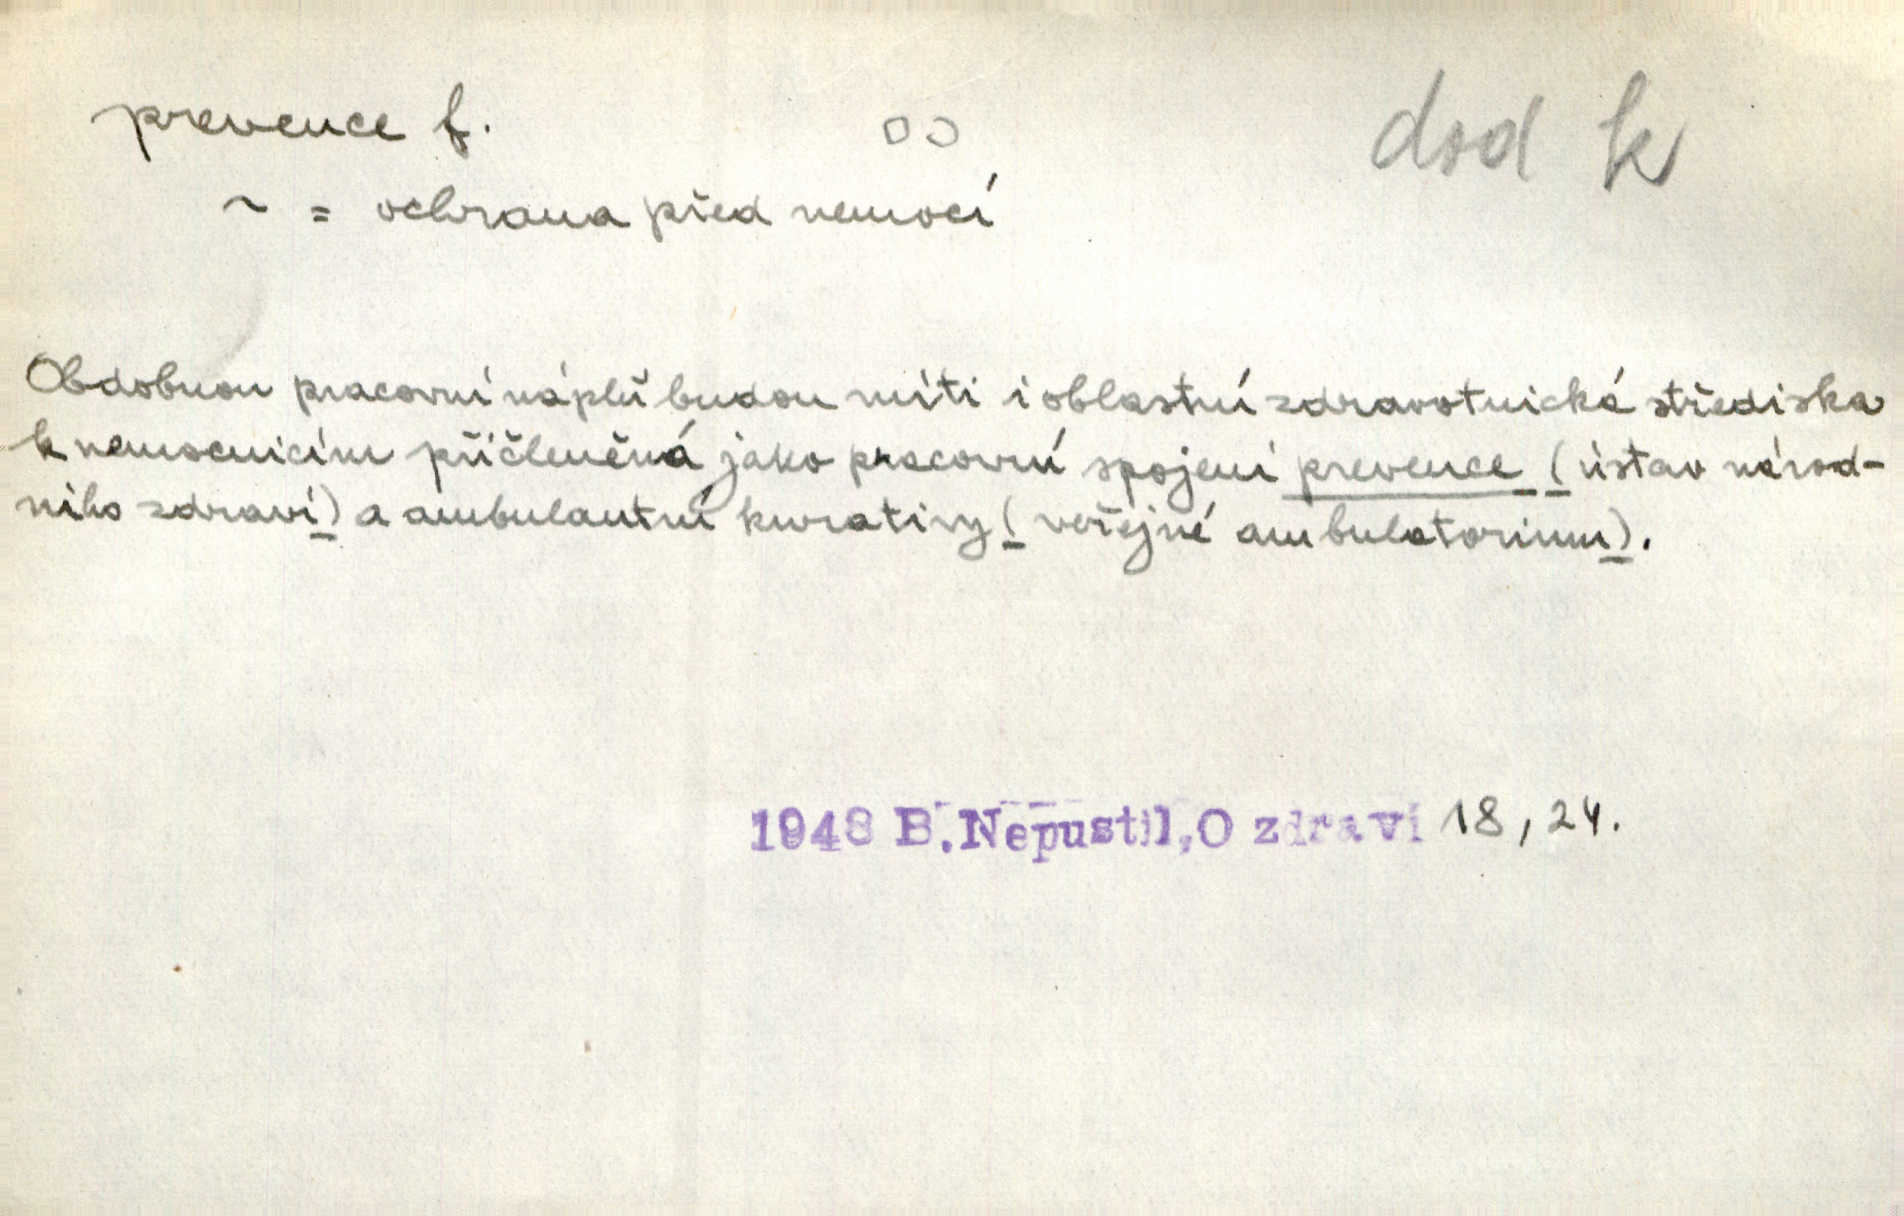 prevence f.
dod k
~ = ochrana před nemocí
Obdobnou pracovní náplň budou míti i oblastní zdravotnická střediska
k nemocnicím přičleněná jako pracovní spojení prevence (ústav národ-
ního zdraví) a ambulantní kurativy (veřejné ambulatorium).
1948 B.Nepustil,O zdraví 18, 24.